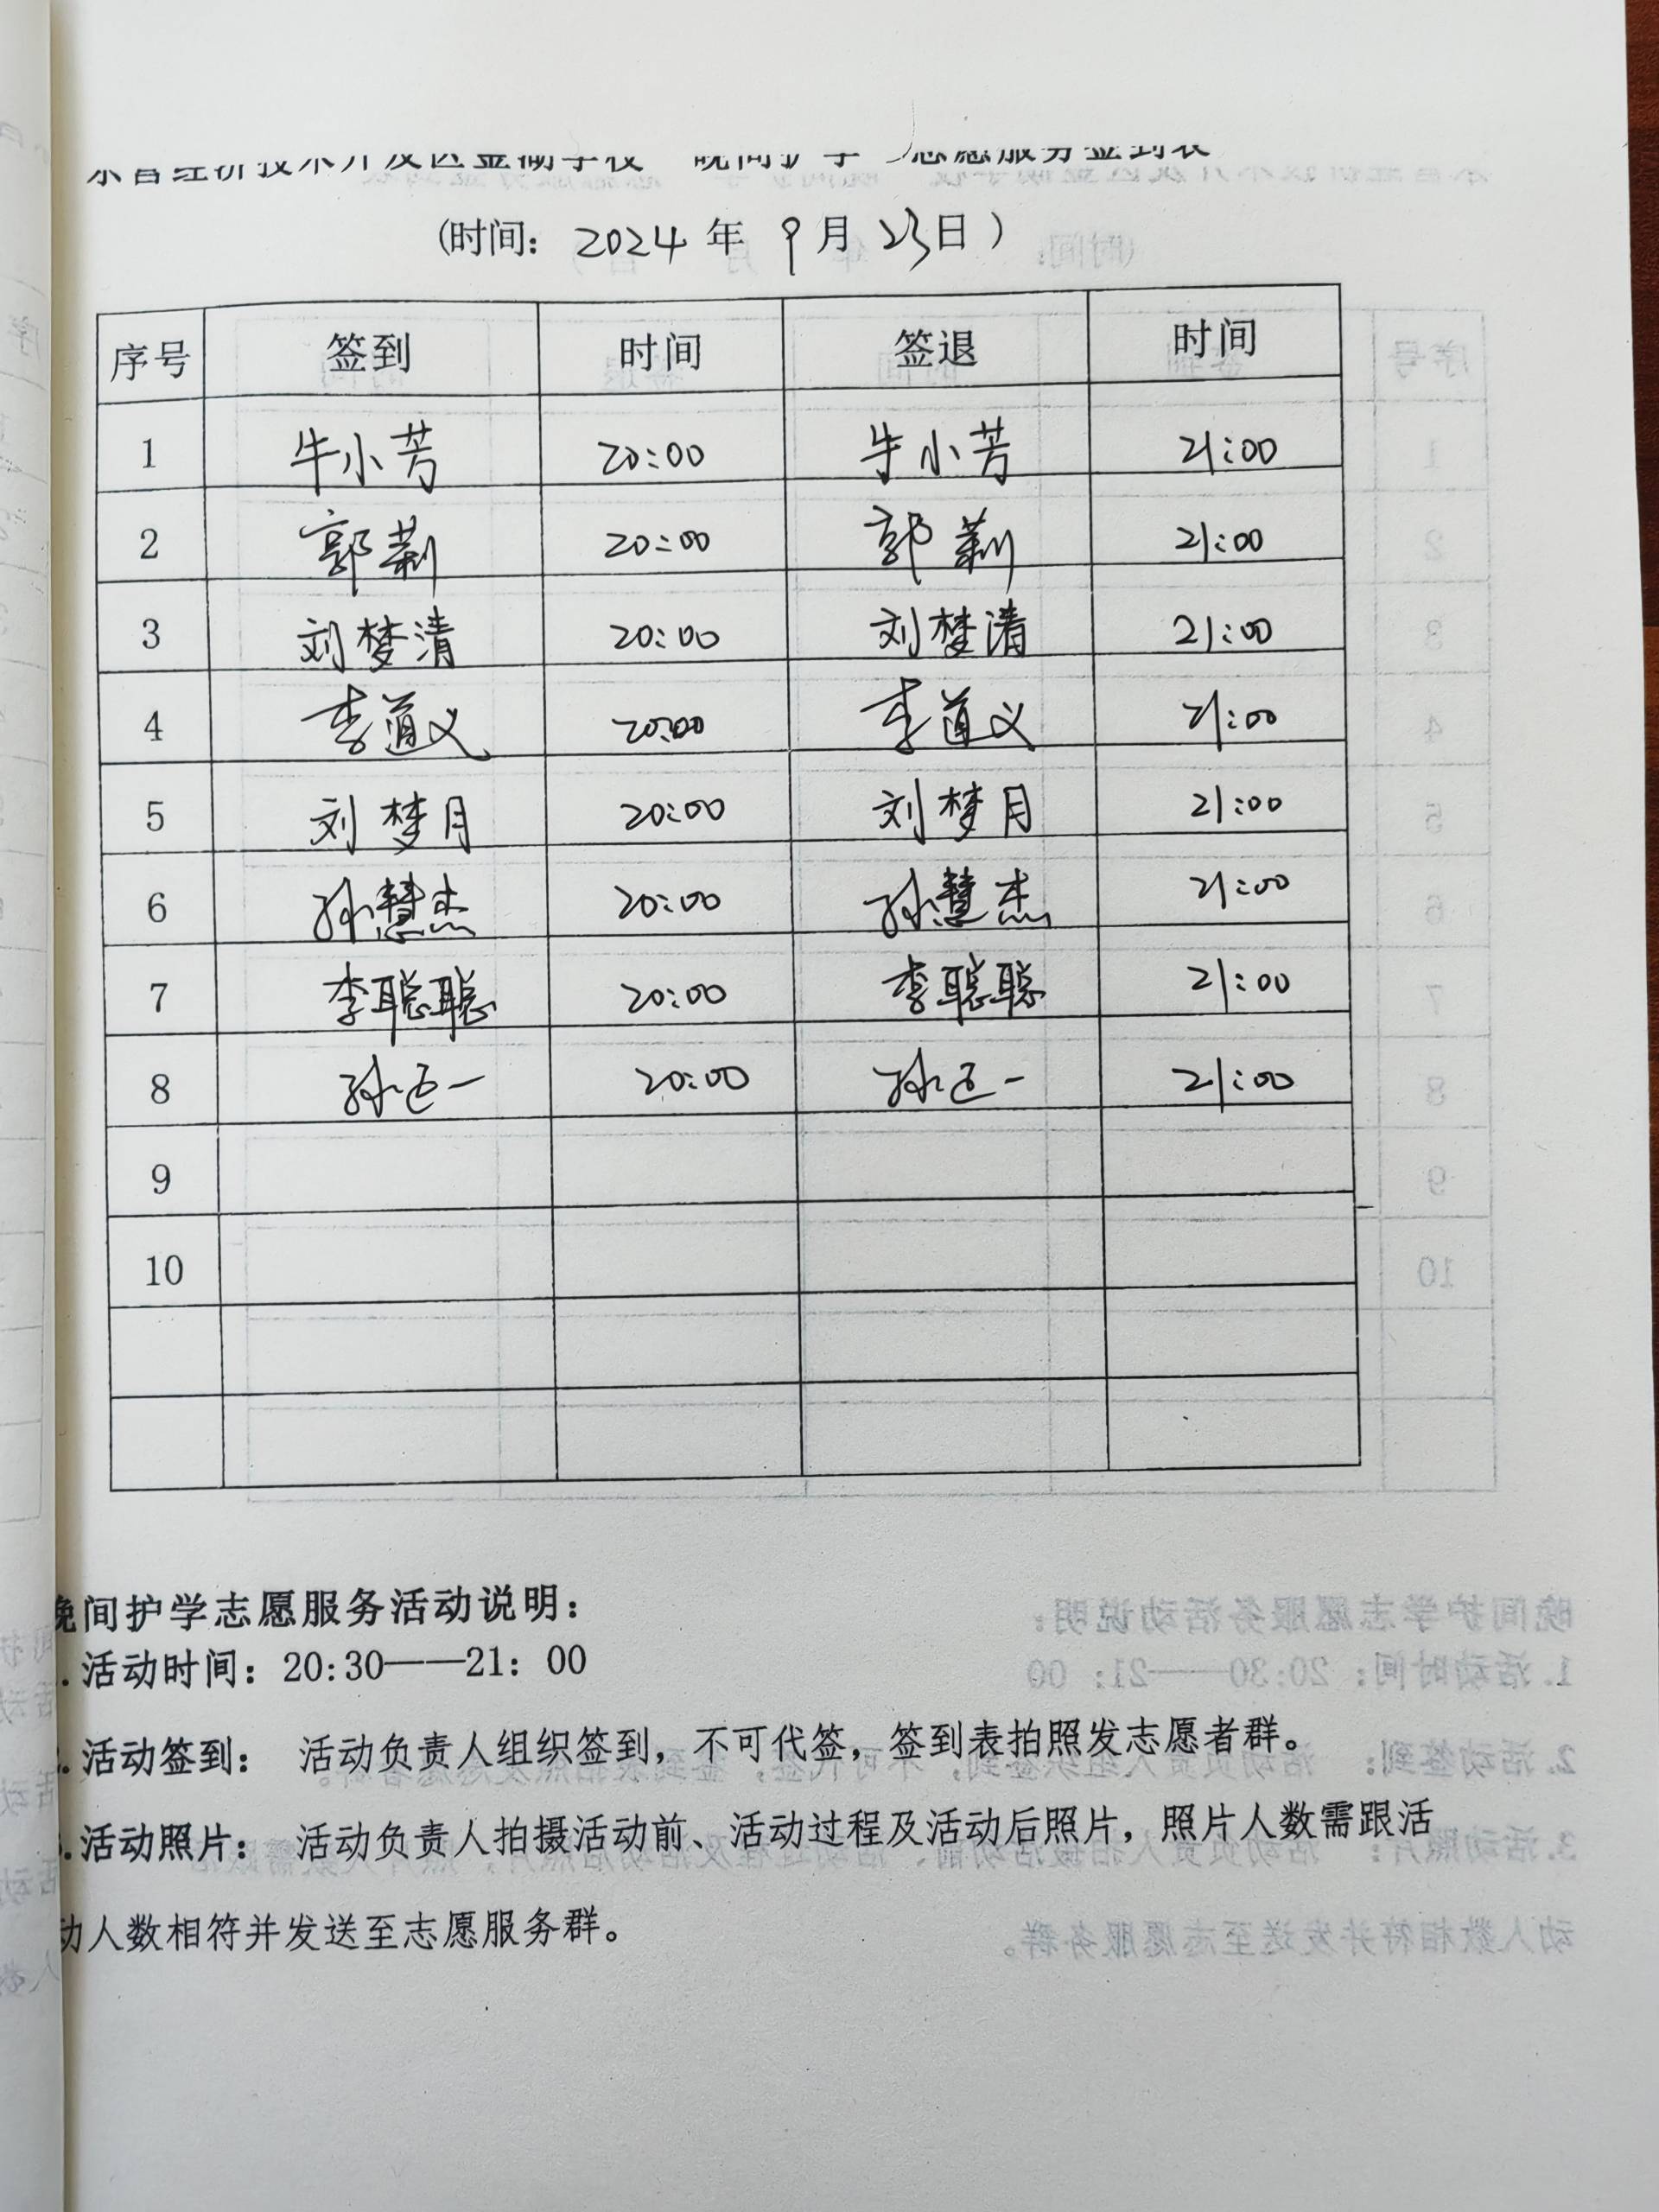 东营经济技术开发区金湖学校 晚间护学 志愿服务签到表
(时间: 2024 年 9 月 23 日 )
序号 签到 时间 签退 时间
1 牛小芳 20:00 牛小芳 21:00
2 郭莉 20:00 郭莉 21:00
3 刘梦清 20:00 刘梦清 21:00
4 李道义 20:00 李道义 21:00
5 刘梦月 20:00 刘梦月 21:00
6 孙慧杰 20:00 孙慧杰 21:00
7 李聪聪 20:00 李聪聪 21:00
8 20:00 21:00
9
10
晚间护学志愿服务活动说明:
.活动时间: 20:30——21: 00
.活动签到: 活动负责人组织签到,不可代签,签到表拍照发志愿者群。
.活动照片: 活动负责人拍摄活动前、活动过程及活动后照片,照片人数需跟活
动人数相符并发送至志愿服务群。